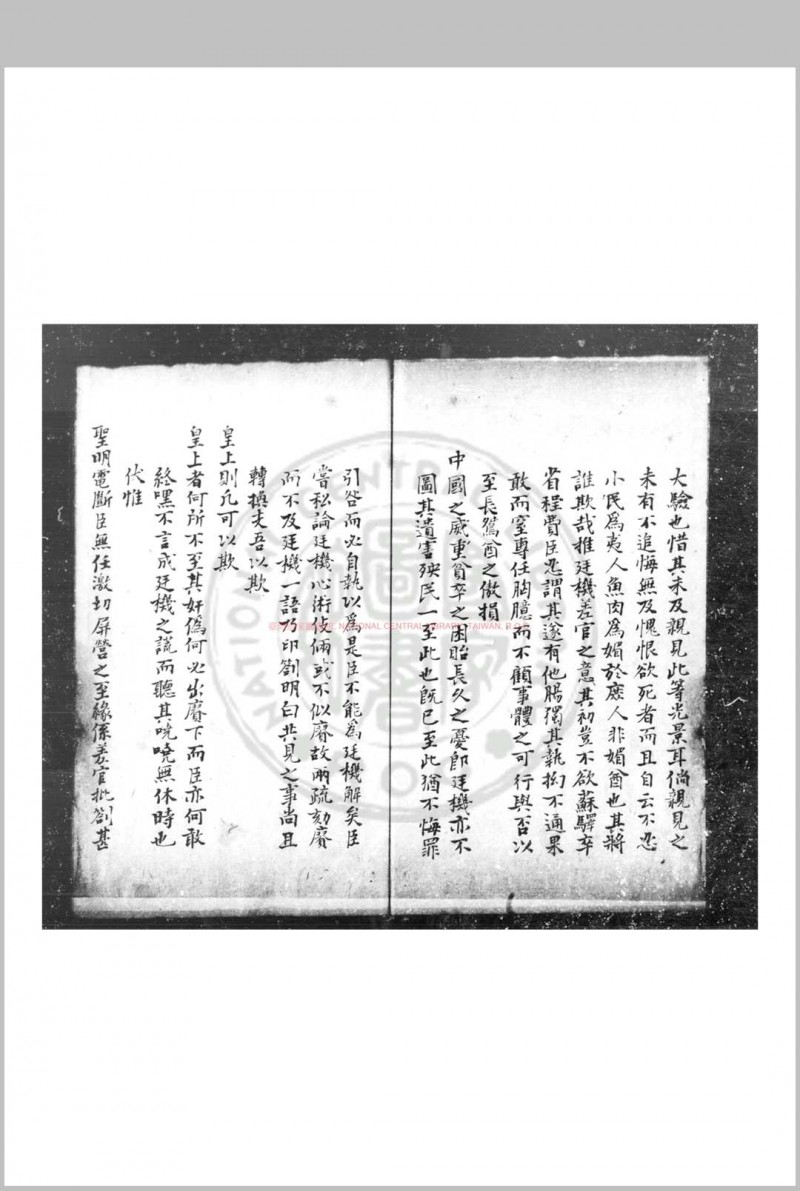 大驗也惜其未及親見此等光景耳倘親見之
未有不追悔無及愧恨欲死者而且自云不忍
小民為夷人魚肉為媚於庶人非媚酋也其將
誰欺哉推廷機差官之意其初豈不欲蘇驛卒
省程費臣忍謂其遂有他腸獨其執拗不通果
敢而窒專任胸臆而不顧事體之可行與否以
至長鴛酋之傲損
中國之威重貧卒之困貽長久之憂即廷機亦不
圖其遺害殃民一至此也既已至此猶不悔罪
引咎而必自執以為是臣不能為廷機解矣臣
嘗私論廷機心術伎倆或不似賡故兩疏劾賡
而不及廷機一語乃印劄明白共見之事尚且
轉換支吾以欺
皇上則凡可以欺
皇上者何所不至其奸偽何必出賡下而臣亦何敢
終嘿不言成廷機之謊而聽其嘵嘵無休時也
伏惟
聖明電斷臣無任激切屏營之至緣係差官批劄甚
NATIONAL CENTRAL LIBRARY, TAIWAN